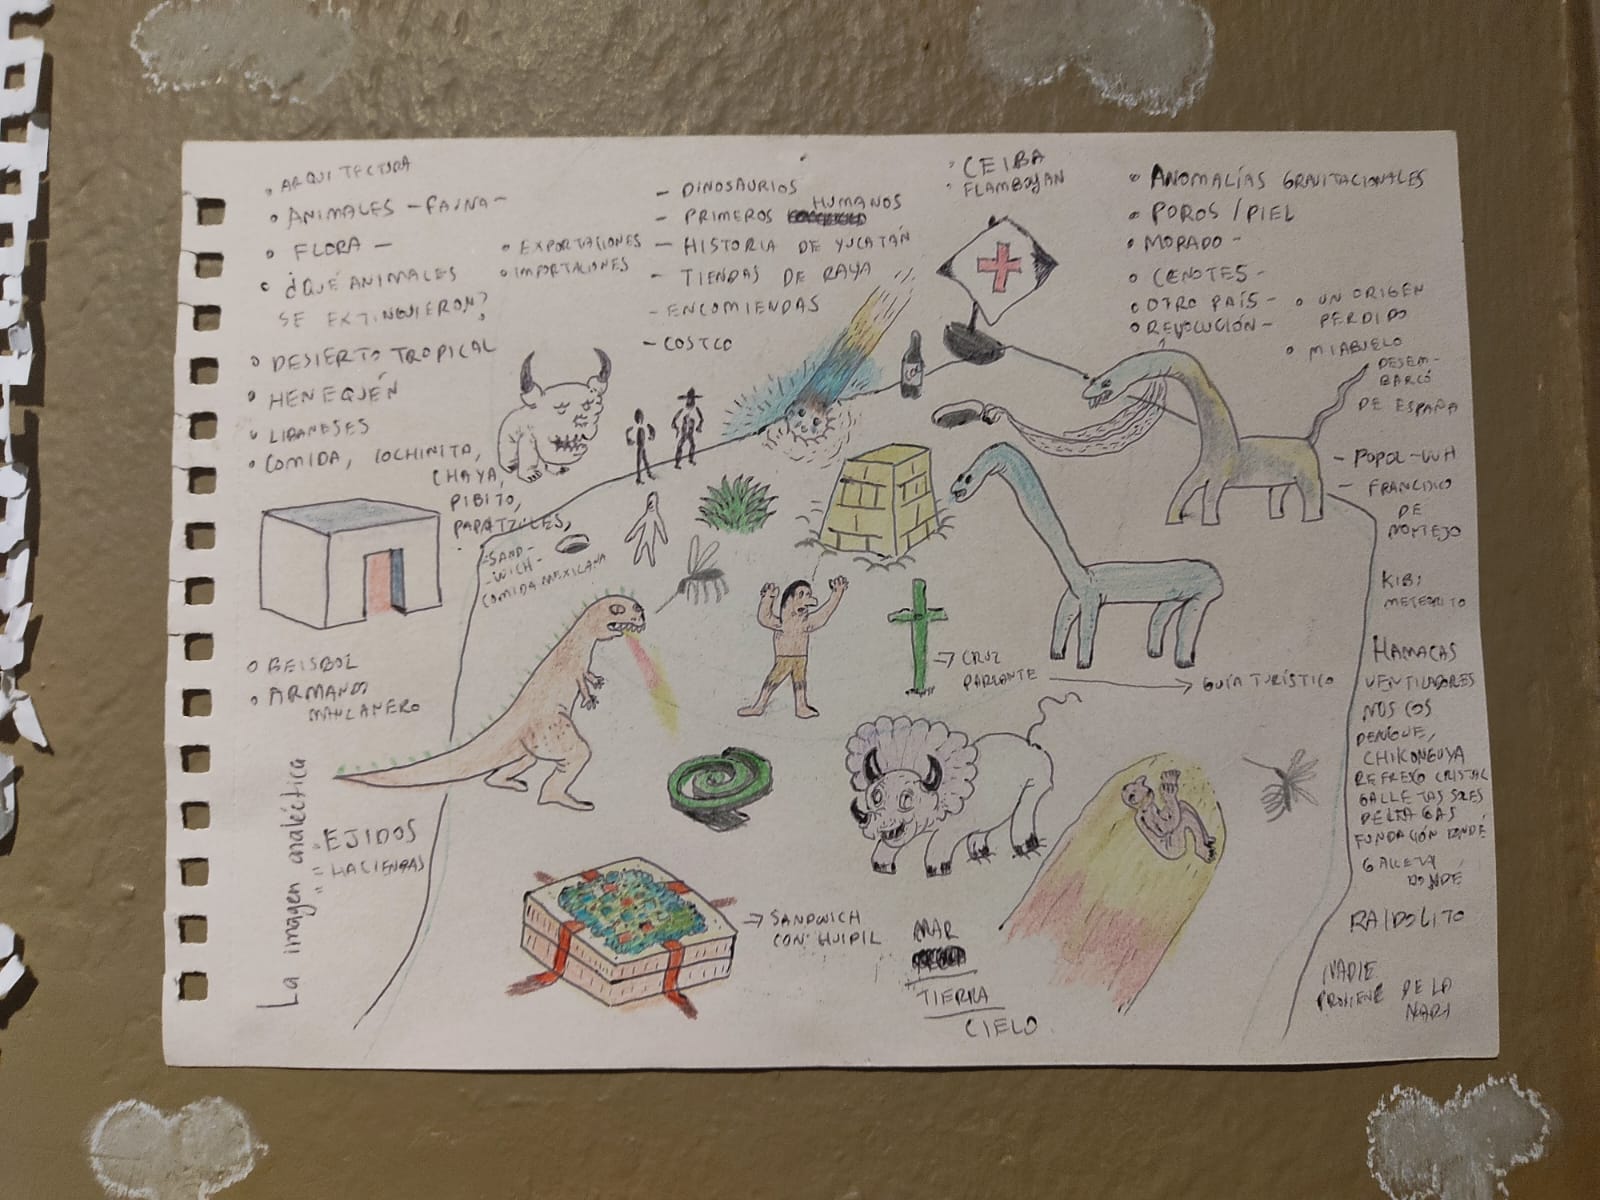 • ARQUITECTURA
• ANIMALES - FAUNA -
• FLORA -
• ¿QUÉ ANIMALES
SE EXTINGUIERON?
• DESIERTO TROPICAL
• HENEQUÉN
• LIBANESES
• COMIDA, COCHINITA,
CHAYA,
PIBITO,
PAPATZULES,
- SAND-
- WICH -
COMIDA MEXICANA
• EXPORTACIONES
• IMPORTACIONES
- DINOSAURIOS
- PRIMEROS HUMANOS
- HISTORIA DE YUCATÁN
- TIENDAS DE RAYA
- ENCOMIENDAS
- COSTCO
• CEIBA
• FLAMBOYAN
• ANOMALÍAS GRAVITACIONALES
• POROS / PIEL
• MORADO -
• CENOTES -
• OTRO PAÍS -
• REVOLUCIÓN -
• UN ORIGEN
PERDIDO
• MI ABUELO
DESEM-
BARCÓ
DE ESPAÑA
- POPOL-VUH
- FRANCISCO
DE
MONTEJO
KIBI
METEORITO
HAMACAS
VENTILADORES
MOSCOS
DENGUE,
CHIKONGUYA
REFRESCO CRISTAL
GALLETAS SOLES
DELTA GAS
FUNDACIÓN DONDÉ
GALLETA
DONDÉ
RAIDOLITO
NADIE
PROVIENE DE LA
NADA
• BEISBOL
• ARMANDO
MANZANERO
→ CRUZ
PARLANTE → GUÍA TURÍSTICO
La imagen analéctica
= EJIDOS
= HACIENDAS
→ SANDWICH
CON HUIPIL
MAR
TIERRA
CIELO